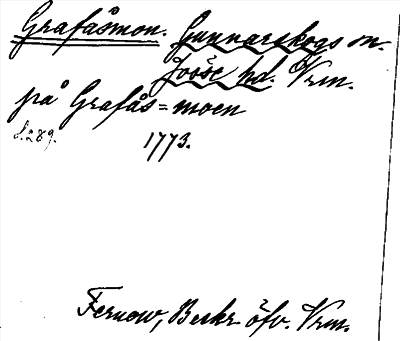 Grafåsmon. Gunnarskogs sn.
Jösse hd. Vrm.
på Grafås=moen
s. 289. 1773.
Fernow, Beskr öfv. Vrm.